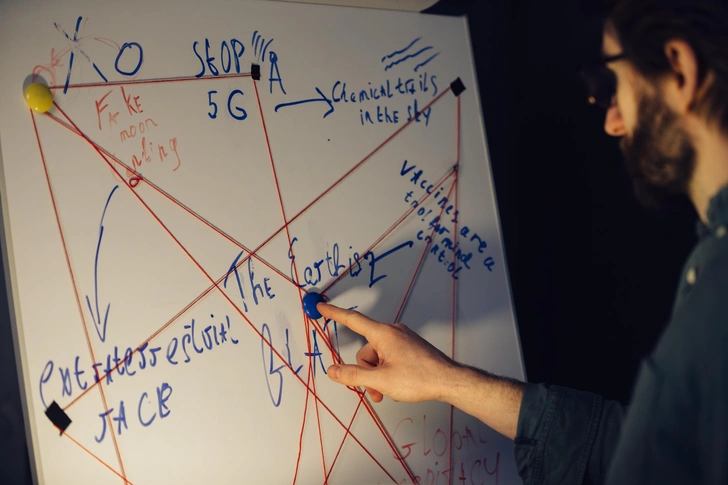 XO
STOP
5G
Chemical trails
in the sky
FAKE
moon
Vaccines are a
tool for mind
control
The Earth is
FLAT
extraterrestrial
RACE
GLOBAL